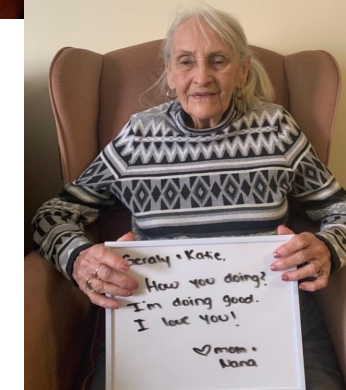 Geraly + Katie.
How you doing?
I'm doing good.
I love you!
♡ mom +
Nana